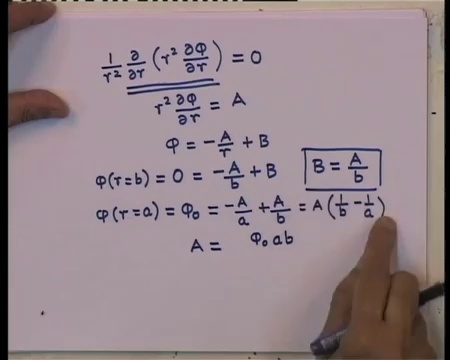 1/r² ∂/∂r (r² ∂φ/∂r) = 0
r² ∂φ/∂r = A
φ = -A/r + B
φ(r=b) = 0 = -A/b + B    B = A/b
φ(r=a) = φ₀ = -A/a + A/b = A(1/b - 1/a)
A = φ₀ab